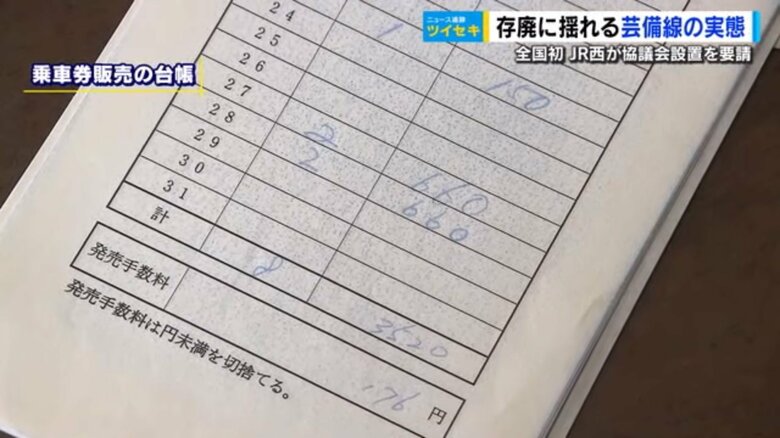 ニュース追跡 ツイセキ
存廃に揺れる芸備線の実態
全国初 JR西が協議会設置を要請
乗車券販売の台帳
1 150
24
25
26
27 2 660
28 2 660
29
30
31
計 8 3520
発売手数料 176 円
発売手数料は円未満を切捨てる。